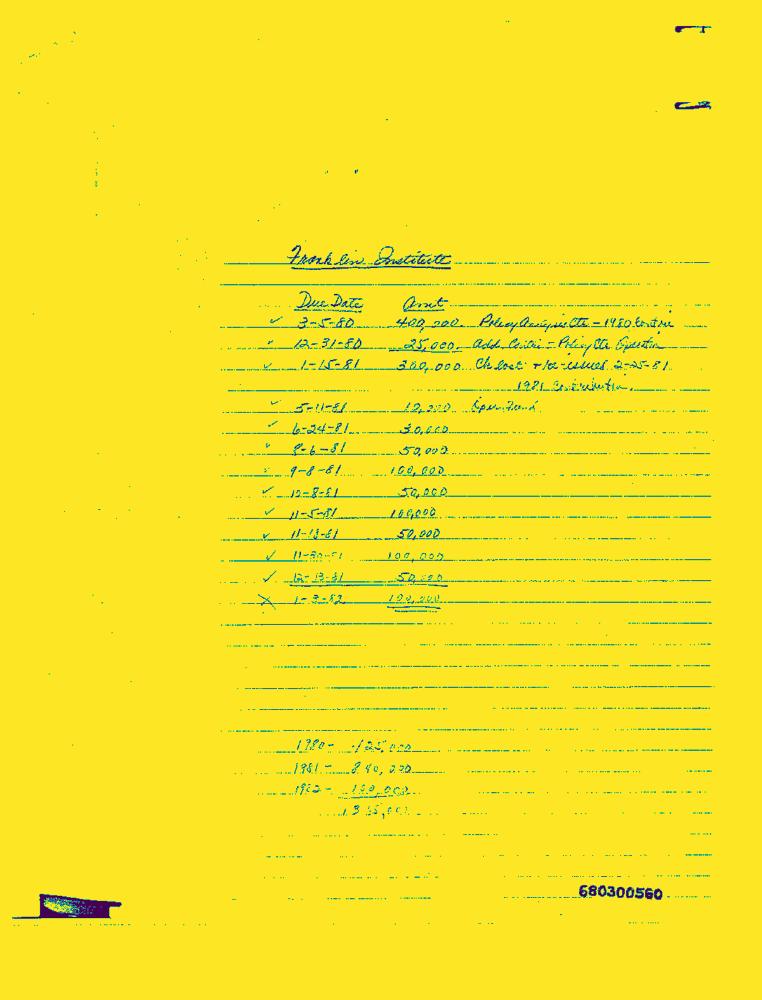 Franklin Institute
Due Date Amt
✓ 3-5-80 400,000. Policy Analysis Ctr - 1980
✓ 12-31-80 25,000. Add. - Policy Ctr
✓ 1-15-81 300,000 Ck lost + re-issued 2-25-81
1981 Contribution.
✓ 5-11-81 10,000 Oper. Fund
✓ 6-24-81 30,000
8-6-81 50,000
9-8-81 100,000
✓ 10-8-81 50,000
✓ 11-5-81 100,000
✓ 11-13-81 50,000
✓ 11-30-81 100,000
✓ 12-13-81 50,000
X 1-3-82 100,000
1980 - 425,000
1981 - 840,000
1982 - 100,000
1,365,000
680300560